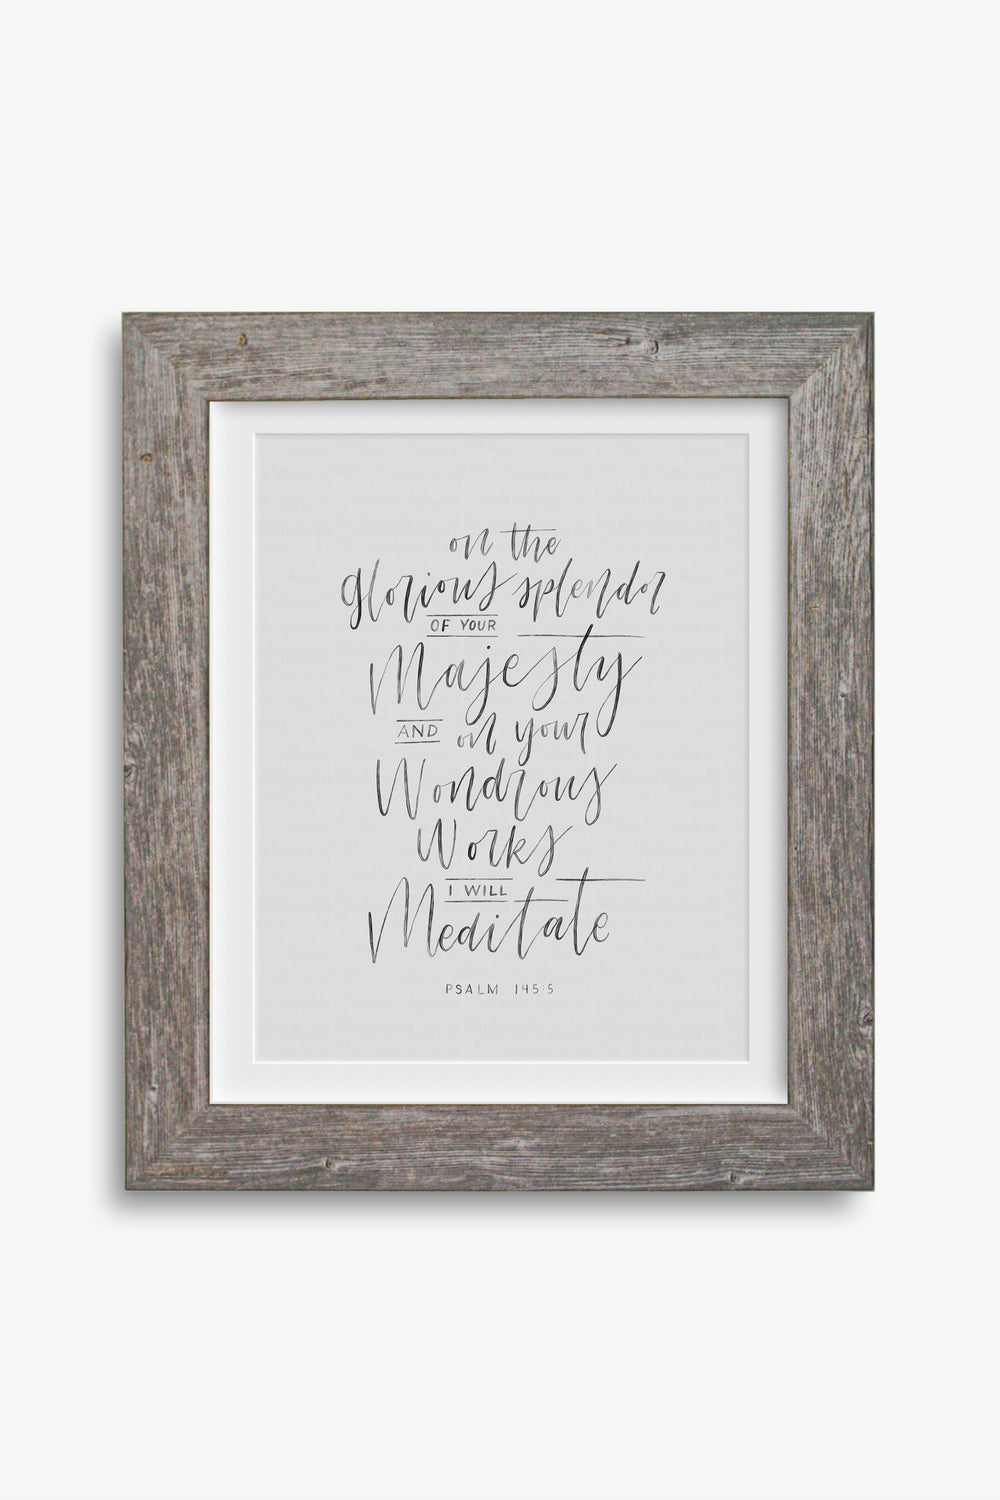 on the
glorious splendor
OF YOUR
Majesty
AND on your
Wondrous
Works
I WILL
Meditate
PSALM 145:5